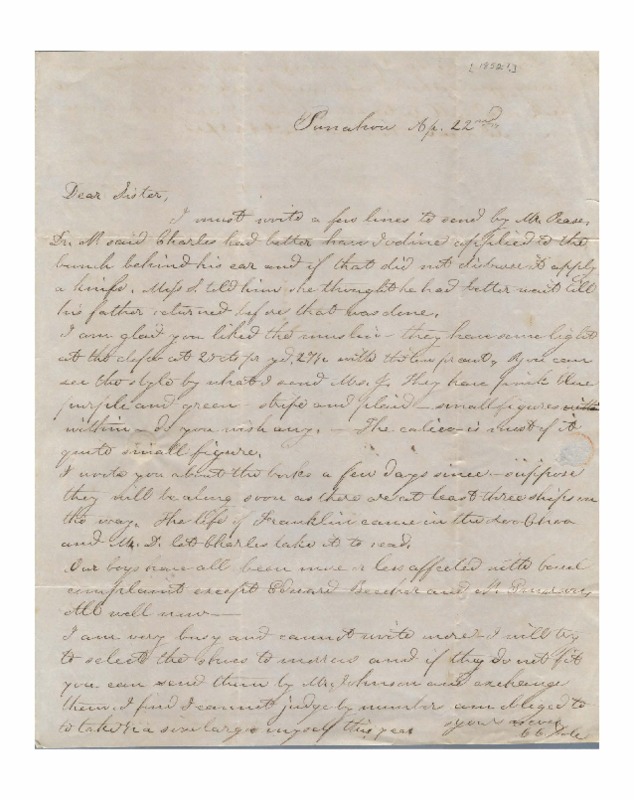 [1852?]
Punahou Ap. 22nd
Dear Sister,
I must write a few lines to send by Mr. Pease.
Dr. M said Charles had better have Iodine applied to the
bunch behind his ear and if that did not disperse it apply
a knife. Miss S. told him she thought he had better wait till
his father returned before that was done.
I am glad you liked the muslin - they have some light
at the depot at 25 cts pr yd, 27½ with the You can
see the style by what I send Mrs. J. They have pink blue
purple and green - stripe and plaid - small figures
within - do you wish any. - The calico is most of it
quite small figure.
I wrote you about the books a few days since - suppose
they will be along soon as there are at least three ships on
the way. The life of Franklin came in the
and Mr. D. let Charles take it to read.
Our boys have all been more or less affected with bowel
complaint except Edward Beecher and
All well now -
I am very busy and cannot write more. I will try
to select the shoes to morrow and if they do not fit
you can send them by Mr. Johnson and exchange
them. I find I cannot judge by number am obliged to
to take a size larger myself this year
yours